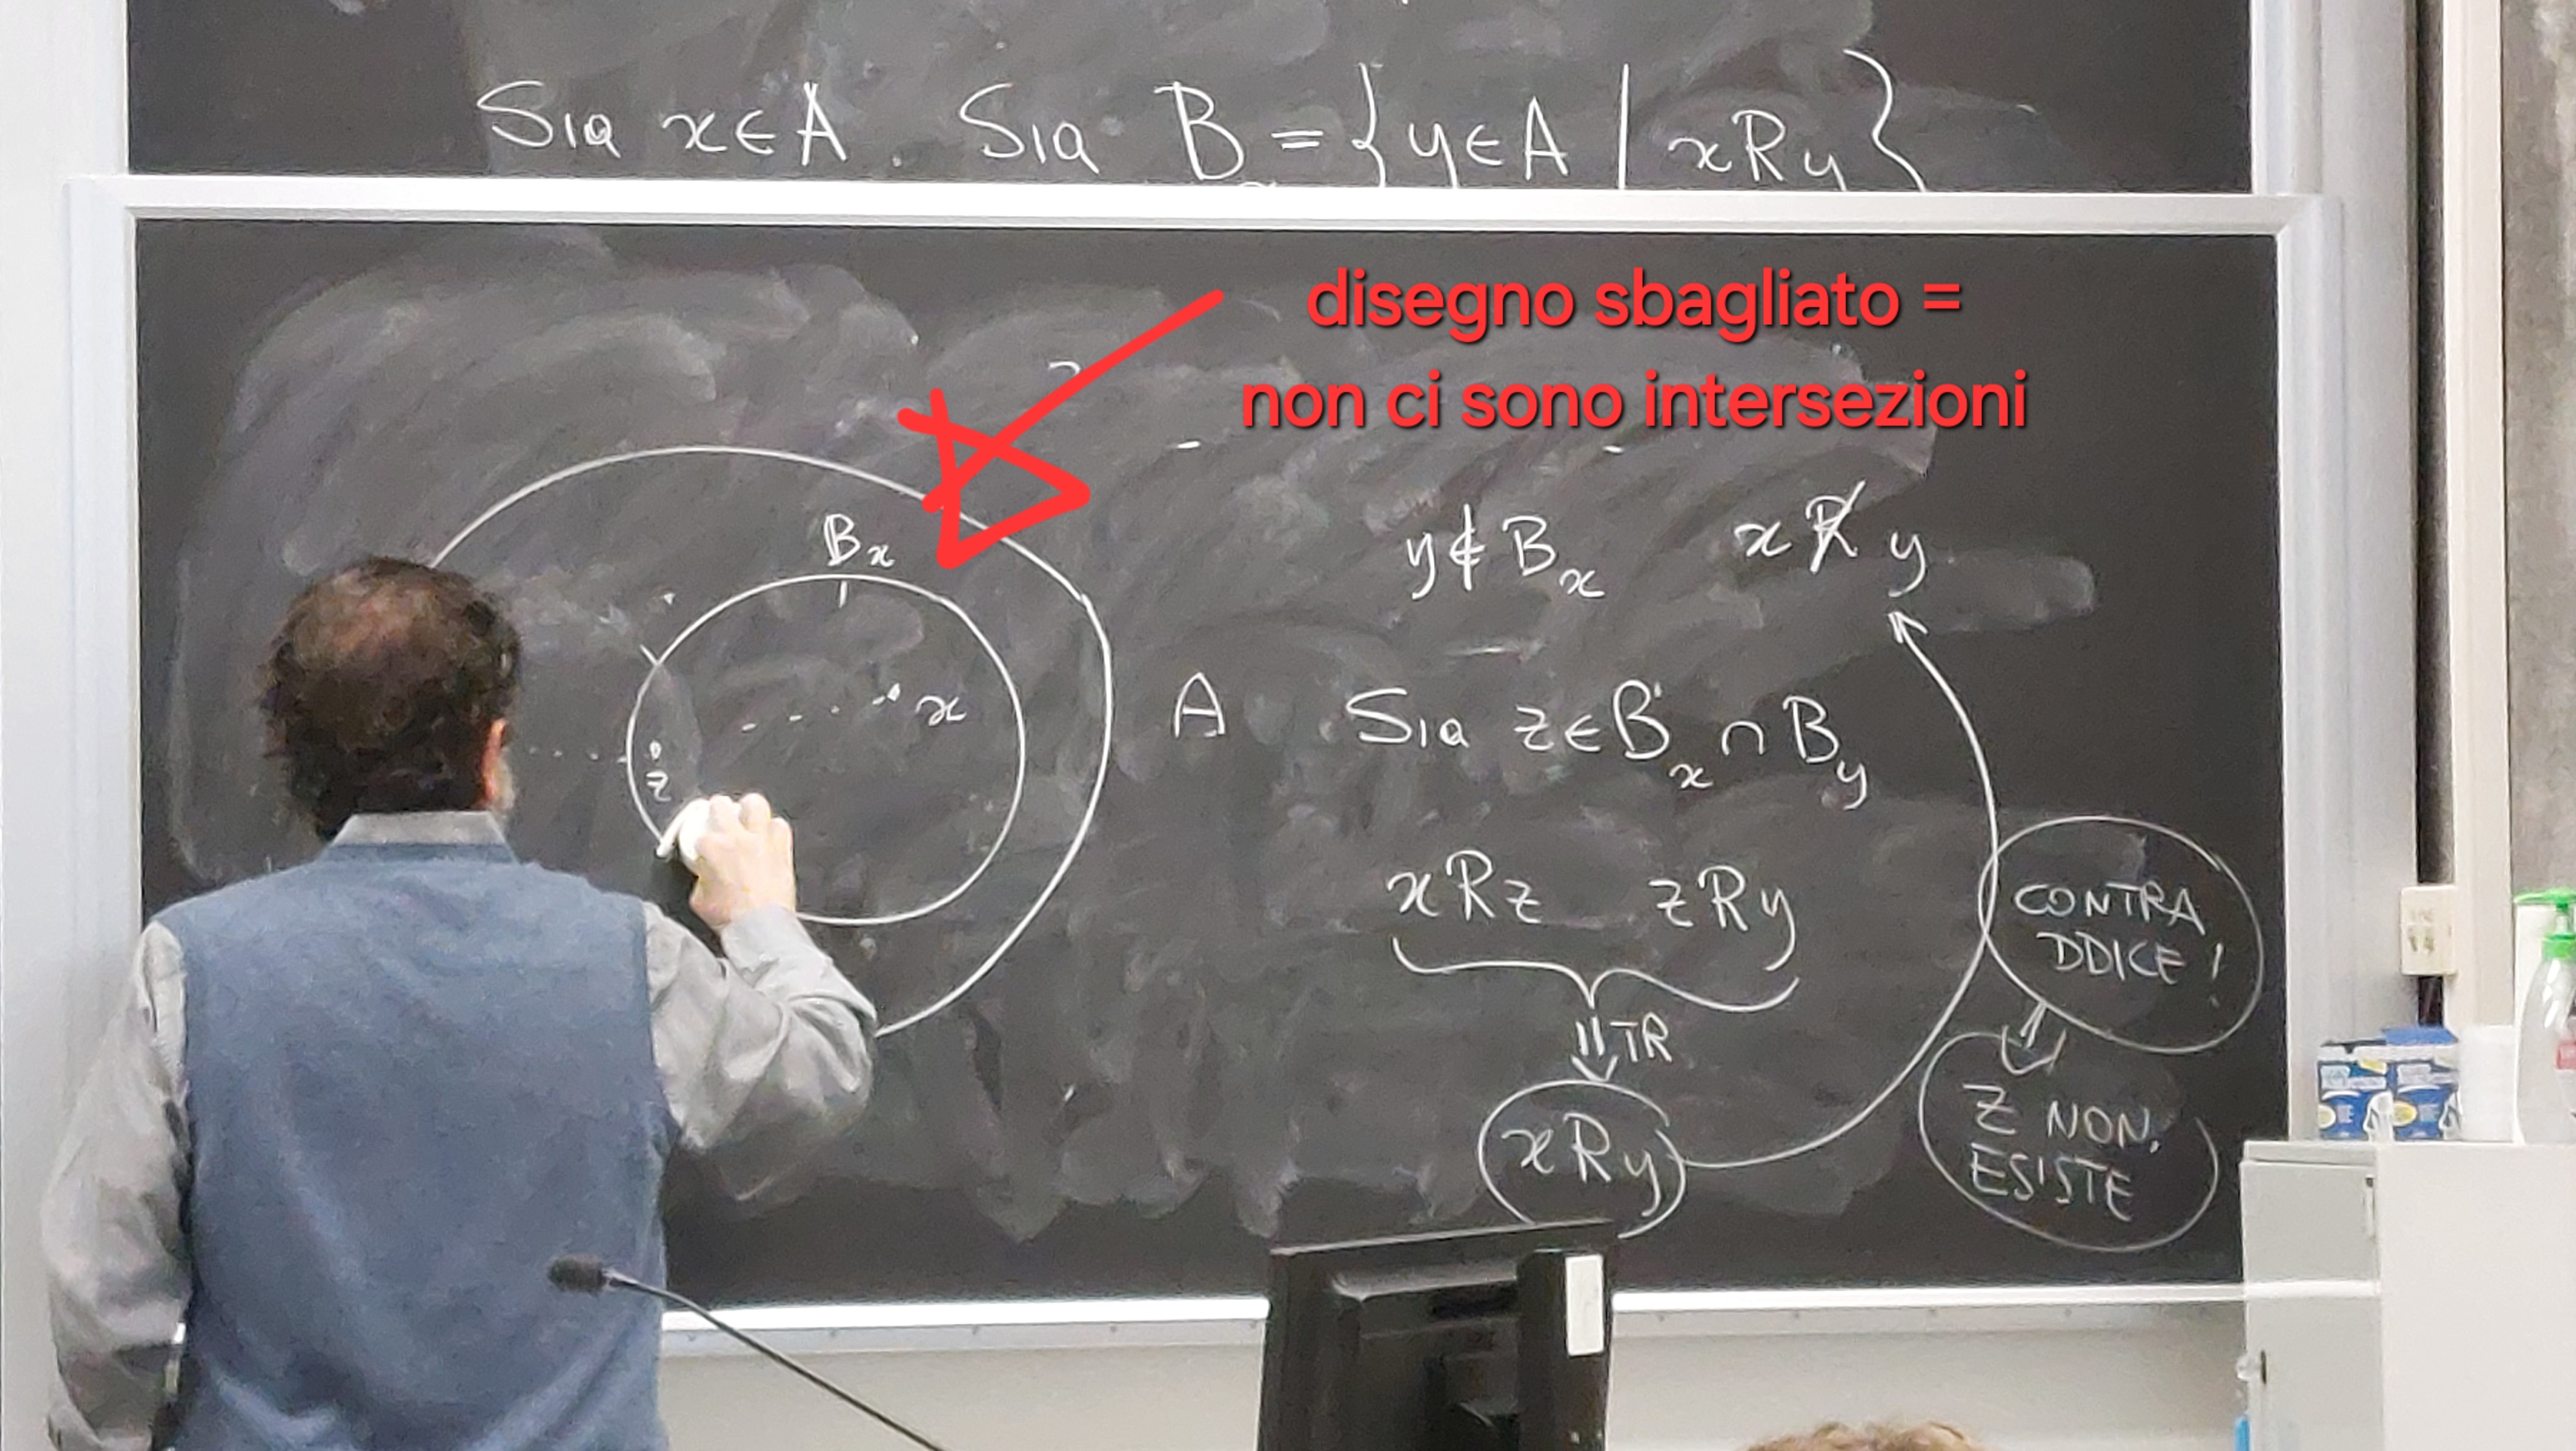 Sia x∈A. Sia B = {y∈A | xRy}
disegno sbagliato =
non ci sono intersezioni
Bₓ
y∉Bₓ x R̸ y
x
z
A
Sia z∈Bₓ∩B_y
xRz zRy
⇓ TR
xRy
CONTRA
DDICE!
⇓
Z NON
ESISTE